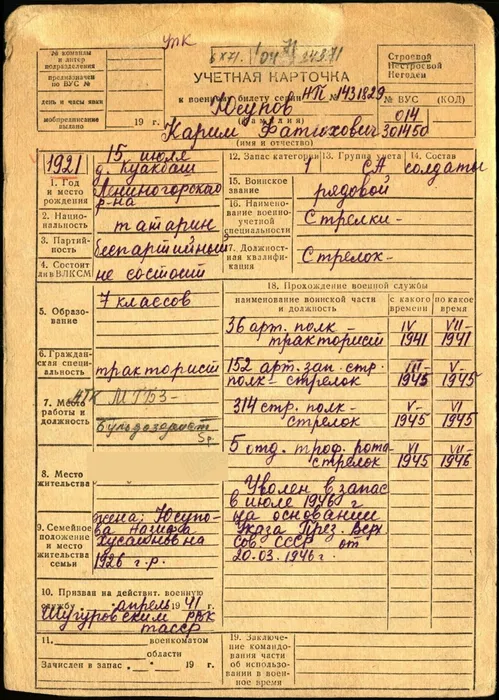 УПК
№ команды
и литер
подразделения
предназначен
по ВУС №
день и часы явки
мобпредписание
выдано
19 г.
Строевой
Нестроевой
Негоден
УЧЕТНАЯ КАРТОЧКА
к военному билету серии НП № 1431829
№ ВУС (КОД)
Юсупов
(фамилия)
014
Карим Фатихович 301450
(имя и отчество)
1921
15 июля
д. Куакбаш
Лениногорского
р-на
1. Год
и место
рождения
2. Нацио-
нальность
татарин
3. Партий-
ность
беспартийный
4. Состоит
ли в ВЛКСМ
не состоит
5. Образо-
вание
7 классов
6. Граждан-
ская специ-
альность
тракторист
7. Место
работы и
должность
МТБЗ-
бульдозерист
8. Место
жительства
9. Семейное
положение
и место
жительства
семьи
жена: Юсупо-
ва Назифа
Хусаиновна
1926 г.р.
10. Призван на действит. военную
службу апрель 1941 г.
Шугуровским РВК
ТАССР
11. военкоматом
области
Зачислен в запас 19 г.
12. Запас категории 1
13. Группа учета СА
14. Состав солдаты
15. Воинское
звание
рядовой
16. Наименование
военно-учетной
специальности
Стрелки-
17. Должностная
квалификация
Стрелок-
18. Прохождение военной службы
наименование воинской части
и должность
с какого
времени
по какое
время
36 арт. полк - IV VII-
тракторист 1941 1941
152 арт. зап. стр. III- V-
полк- стрелок 1945 1945
314 стр. полк- V- VI
стрелок 1945 1945
5 отд. троф. рота VI VII
стрелок 1945 1946
Уволен в запас
в июле 1946 г
на основании
Указа През. Верх
Сов. СССР от
20.03.1946 г.
19. Заключение
командования
части об
использовании
в военное
время